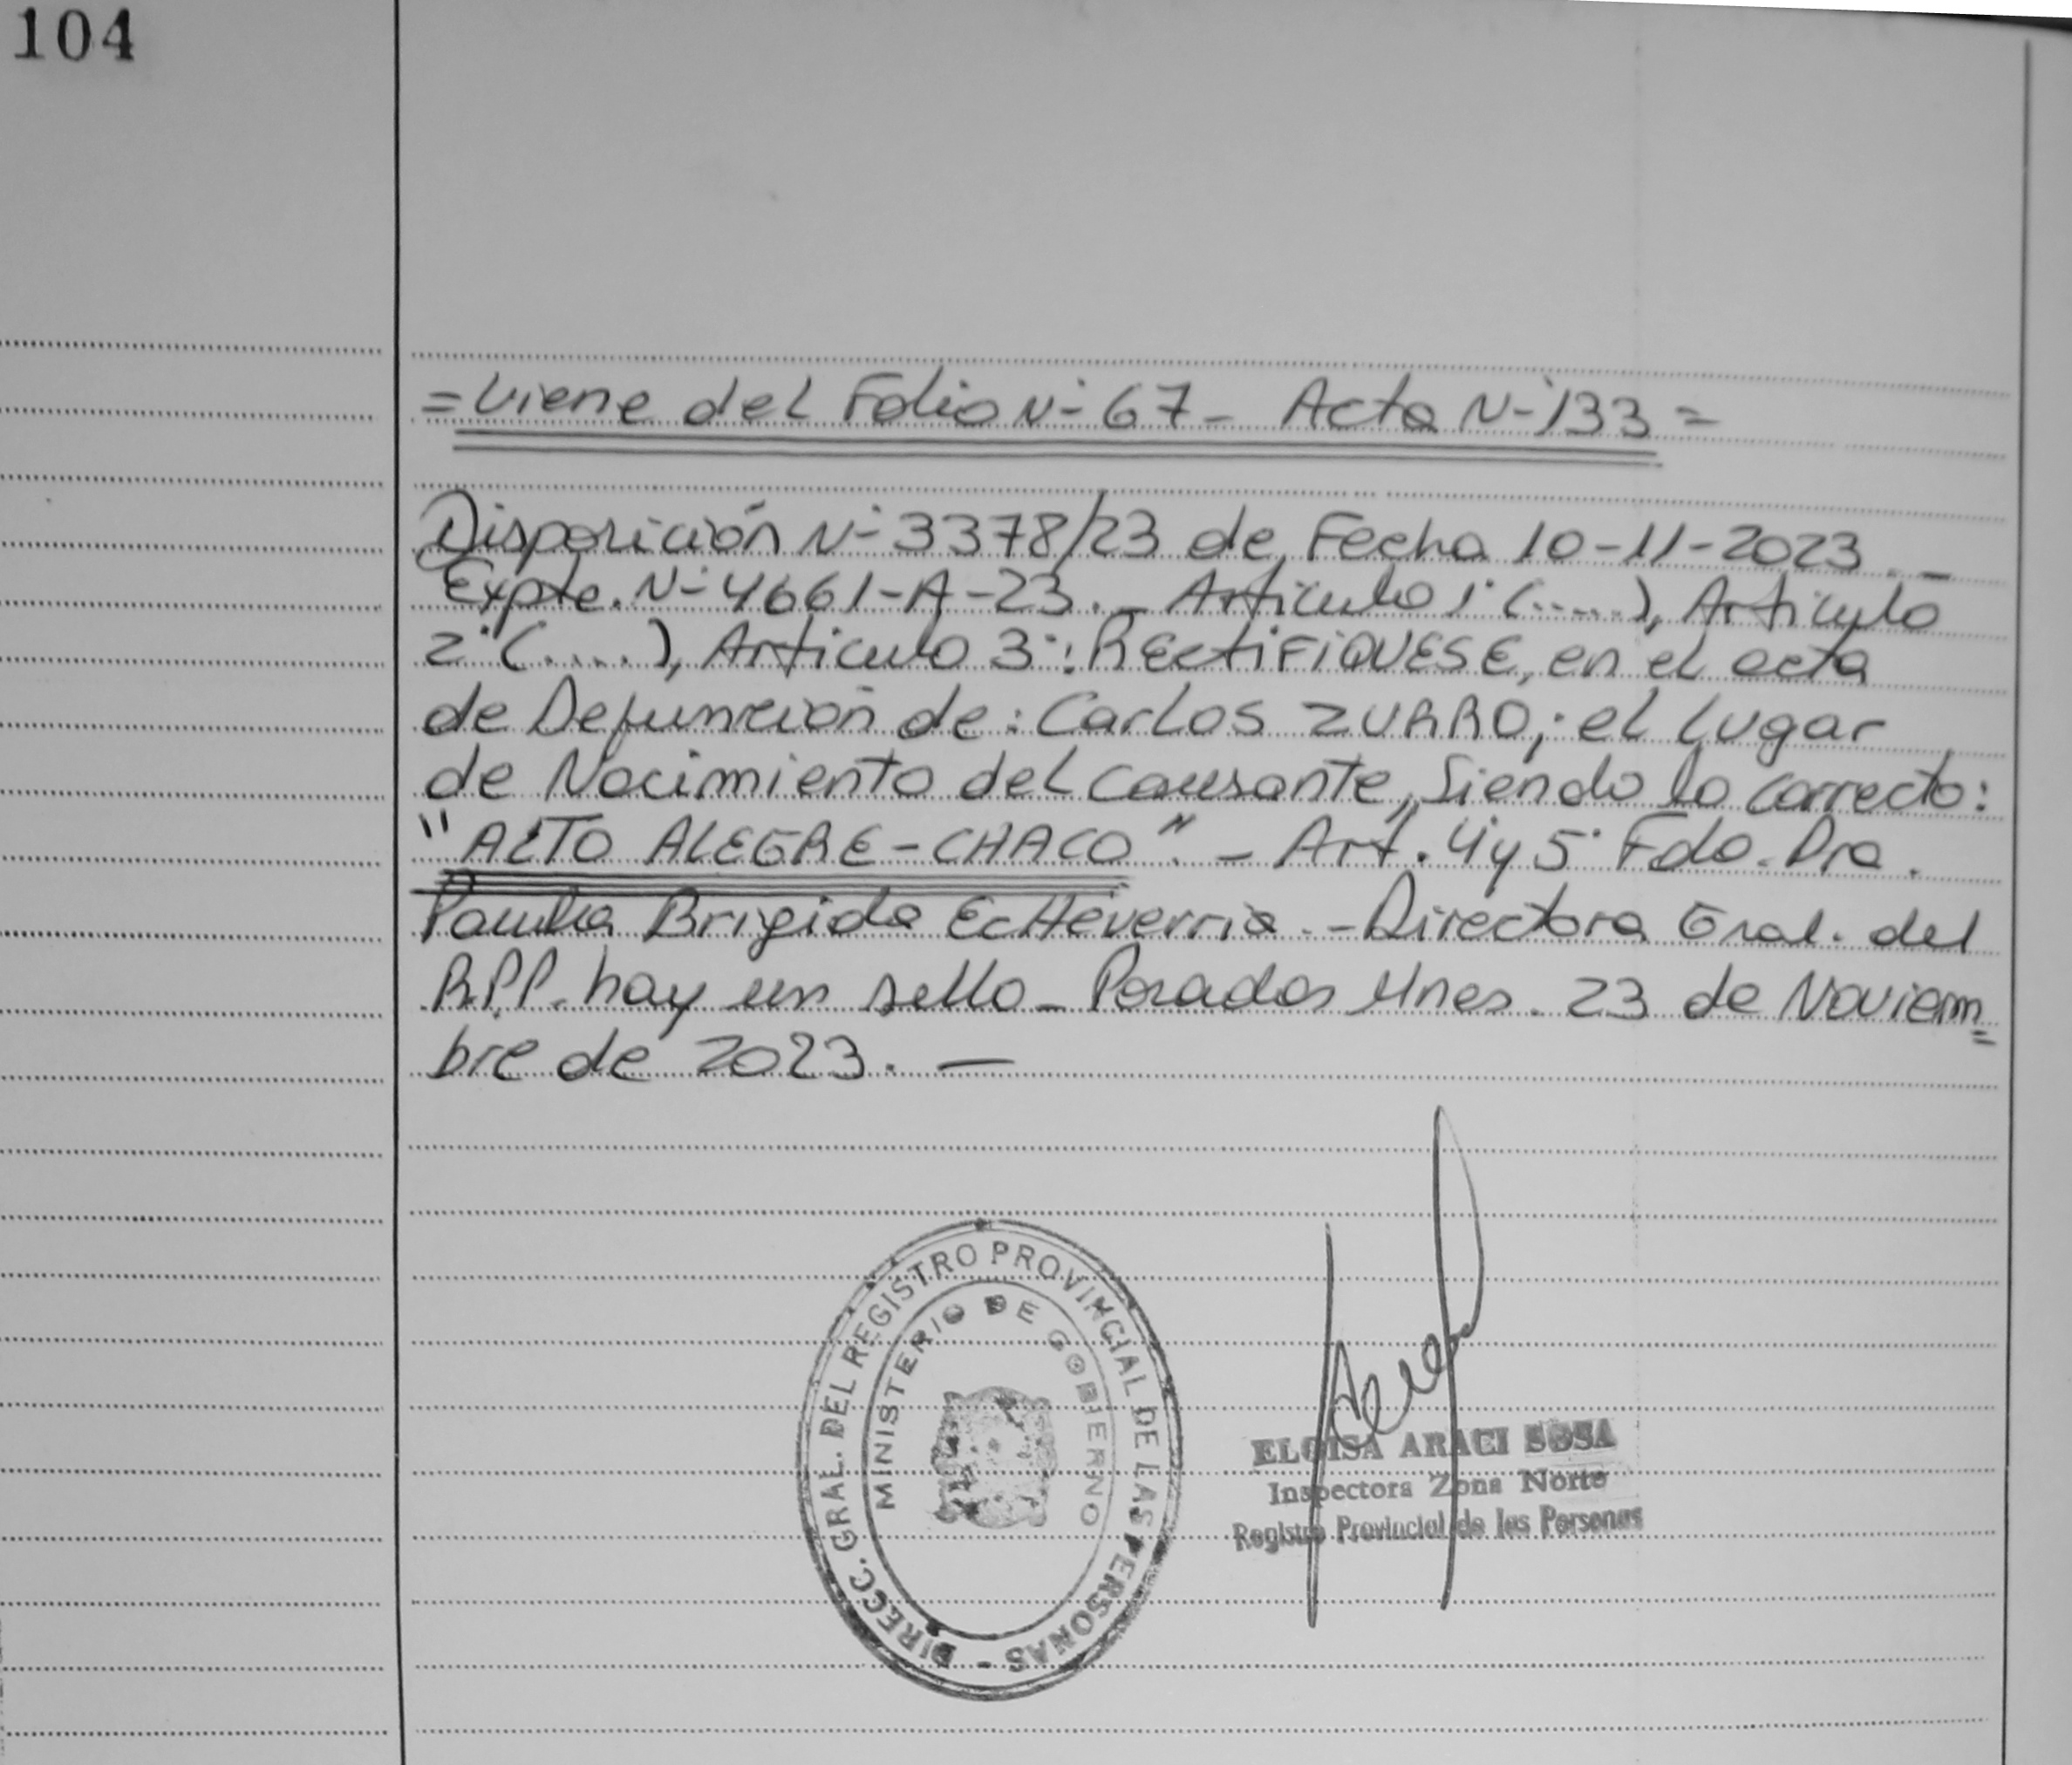 104
=Viene del Folio N° 67 - Acta N° 133=
Disposición N° 3378/23 de Fecha 10-11-2023.-
Expte. N° 4661-A-23.- Articulo 1° (.....), Articulo
2° (.....), Articulo 3°: RECTIFIQUESE, en el acta
de Defunción de: Carlos ZURRO; el lugar
de Nacimiento del causante, Siendo lo correcto:
"ALTO ALEGRE-CHACO".- Art. 4 y 5° Fdo. Dra.
Brigida Echeverria.- Directora Gral. del
R.P.P. hay un sello - Posadas Mnes. 23 de Noviem=
bre de 2023.-
DIRECC. GRAL. DEL REGISTRO PROVINCIAL DE LAS PERSONAS -
MINISTERIO DE GOBIERNO
ELOISA ARACI SOSA
Inspectora Zona Norte
Registro Provincial de las Personas